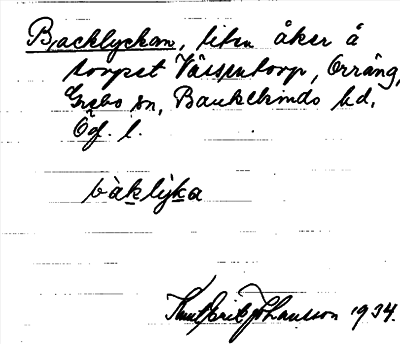 Backlyckan, liten åker å
torpet Vässentorp, Orräng,
Grebo sn, Bankekinds hd,
Ög. l.
bàklỳka
Knut Erik Johansson 1934.